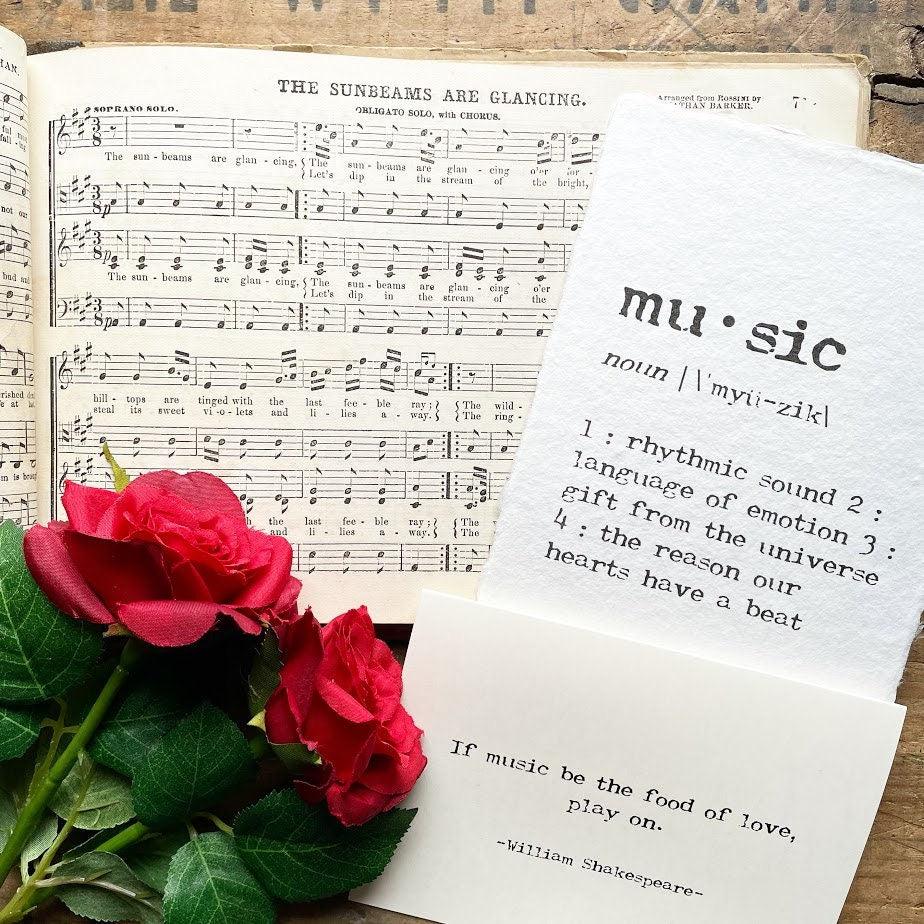 THE SUNBEAMS ARE GLANCING.
SOPRANO SOLO.
OBLIGATO SOLO, with CHORUS.
Arranged from ROSSINI BY
NATHAN BARKER.
The sun - beams are glan - cing, { The sun - beams are glan - cing o'er
{ Let's dip in the stream of the bright,
p
p
The sun - beams are glan - cing, { The sun - beams are glan - cing o'er
{ Let's dip in the stream of the
p
hill - tops are tinged with the last fee - ble ray; } { The wild -
steal its sweet vi - o - lets and li - lies a - way. } { The ring -
the last fee - ble ray; } { The
and li - lies a - way. } { The
mu•sic
noun | \ˈmyü-zik\
1 : rhythmic sound 2 :
language of emotion 3 :
gift from the universe
4 : the reason our
hearts have a beat
If music be the food of love,
play on.
-William Shakespeare-